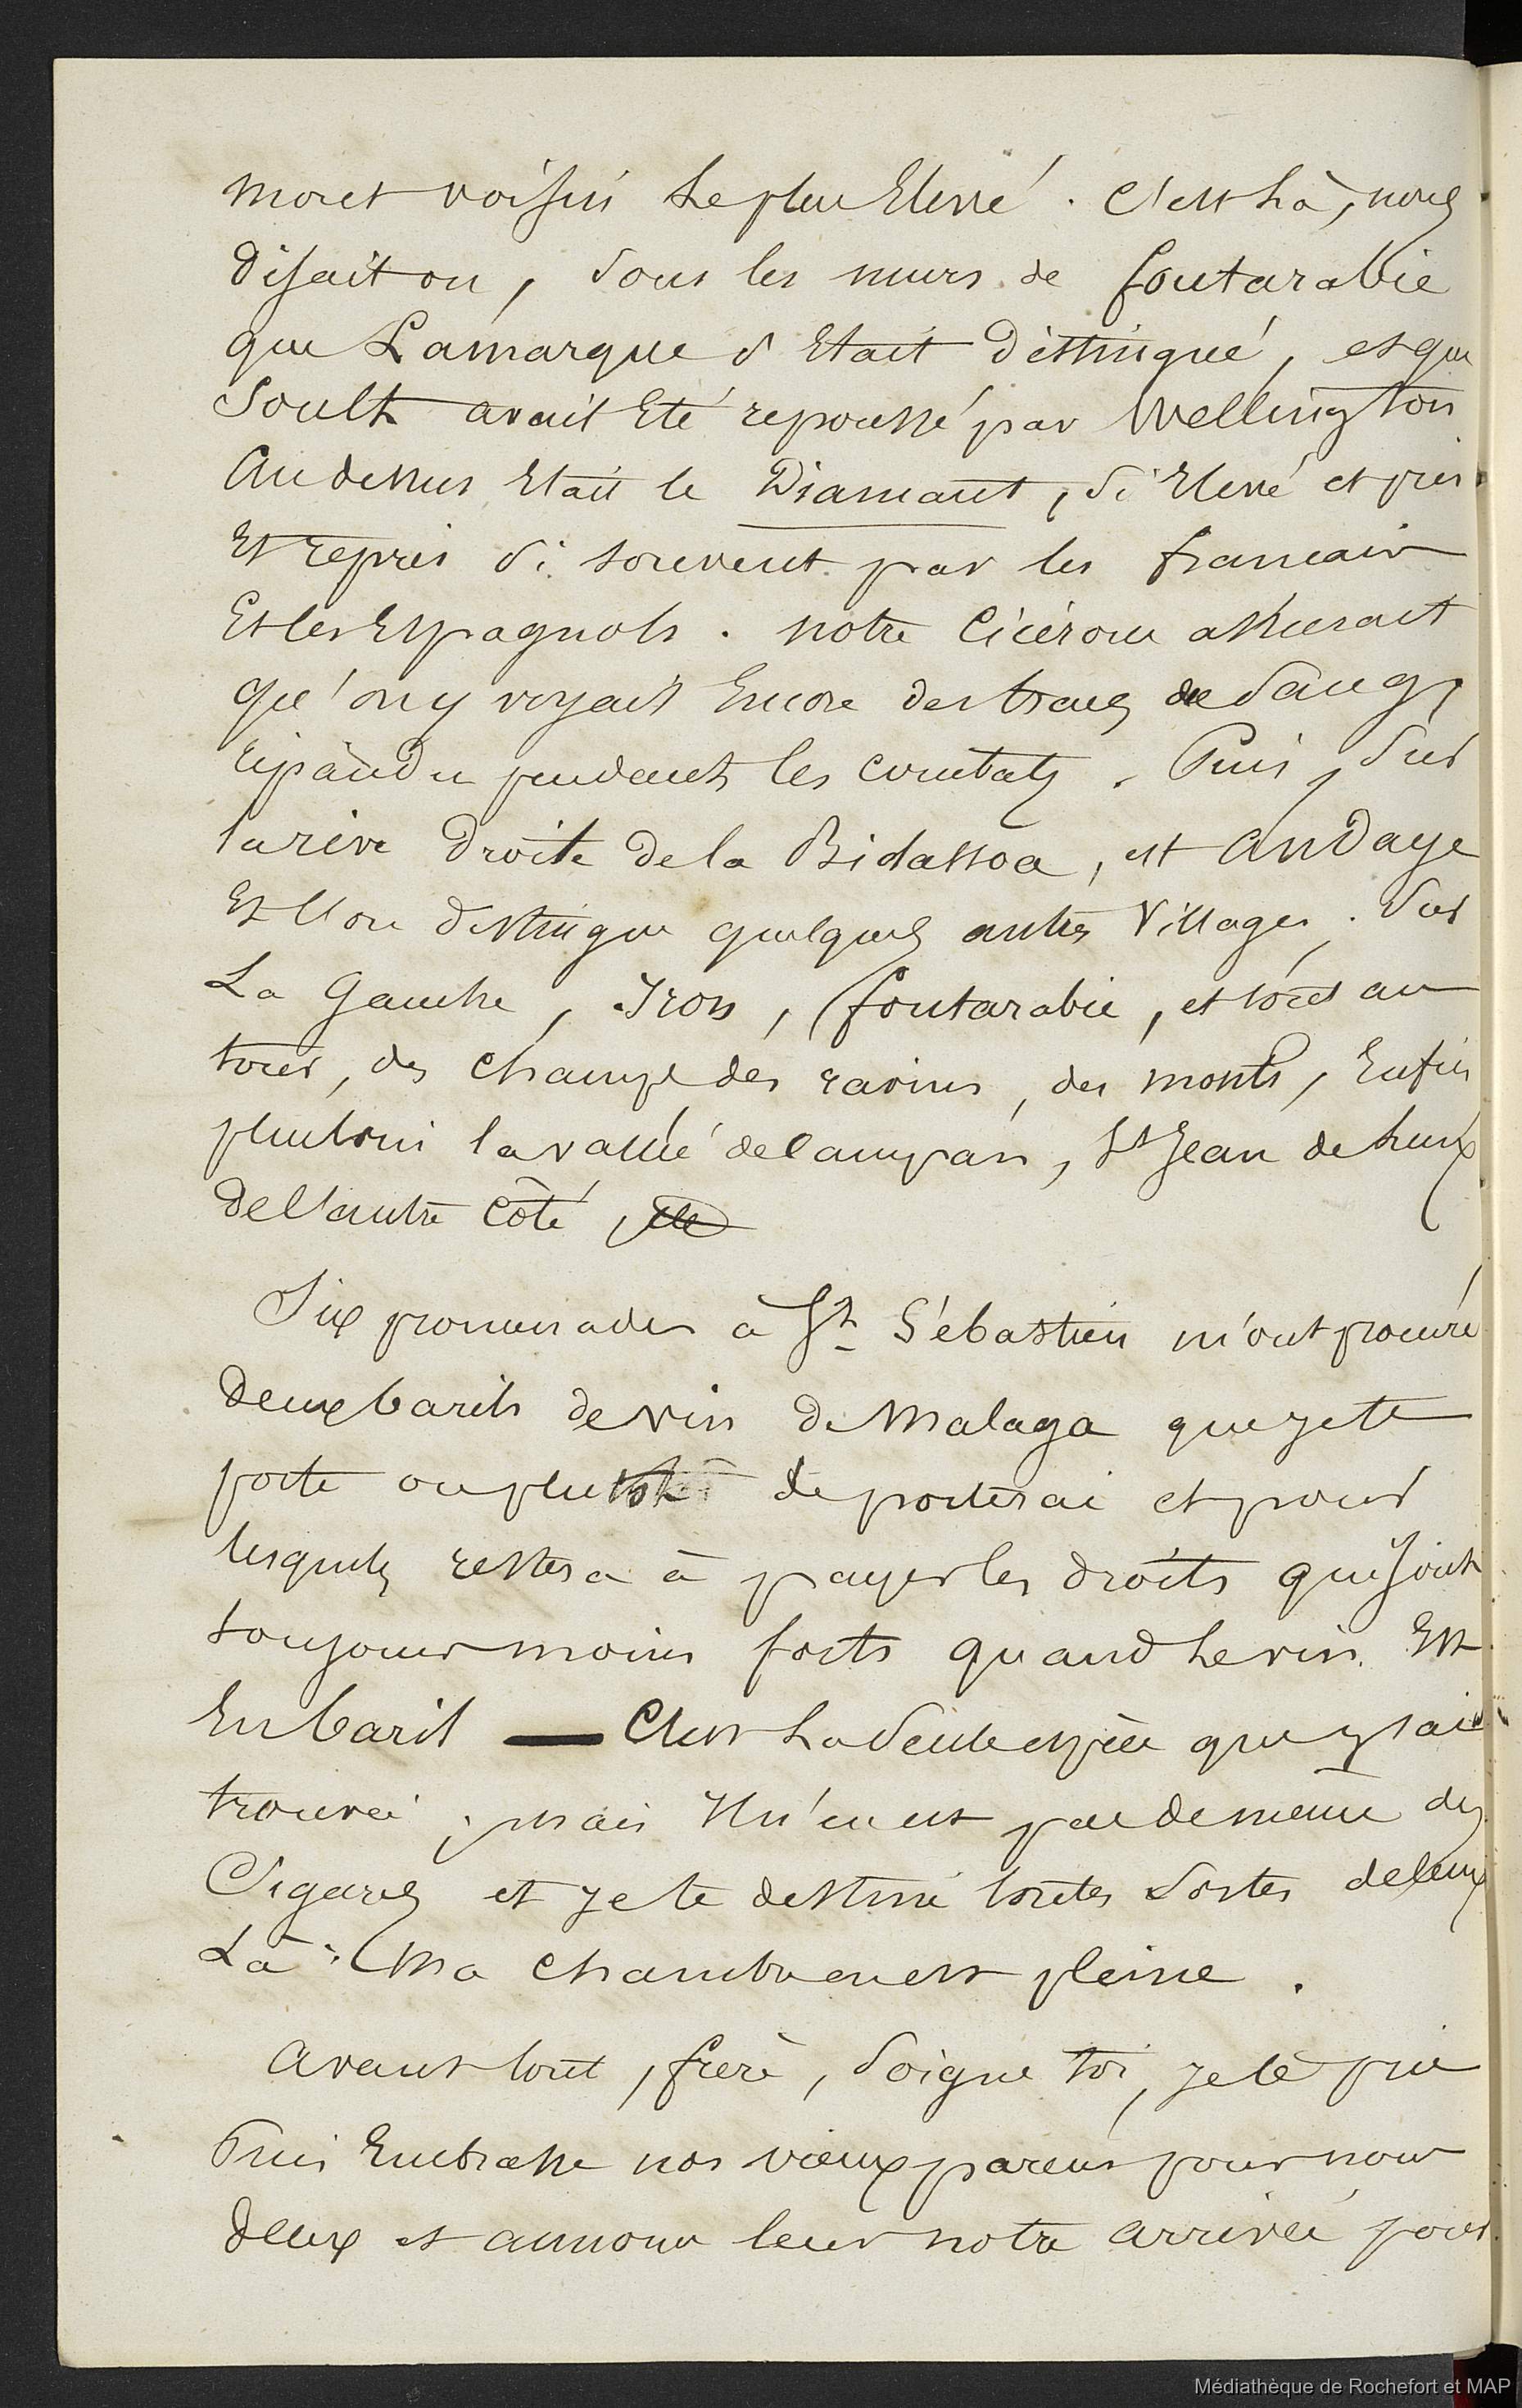 mont voisin le plus Elevé. C'est là, nous
disait on, sous les murs de fontarabie
que Lamarque s'Etait distingué, et que
Soult avait Eté repoussé par Wellington
Au dessus Etait le Diamant, si Elevé et pris
Et repris si souvent par les francais
Et les Espagnols. notre Cicérone assurait
qu'on y voyait Encore des traces de sang,
répandu pendant les combats. Puis, sur
la rive Droite de la Bidassoa, est Andaye
Et l'on distingue quelques autres Villages. Sur
La Gauche, Iron, fontarabie, et tout au
tour, des champs des ravins, des monts, Enfin
plus loin la vallée de Campan, St Jean de Luz
de l'autre Côté, etc
Six promenades à St Sébastien m'ont procuré
deux barils de vin de Malaga que je te
porte ou plutôt te porterai et pour
lesquels restera à payer les droits qui sont
toujours moins forts quand le vin Est
En baril — C'est la seule espèce que j'aie
trouvée; mais Il n'en est pas de même des
Cigares et je te destine toutes sortes de ceux
Là: Ma chambre en est pleine.
Avant tout, frère, soigne toi, je te prie
Puis Embrasse nos vieux parens pour nous
deux et annonce leur notre arrivée pour
Médiathèque de Rochefort et MAP